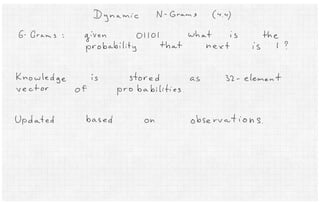 Dynamic N-Grams (4.4)
6-Grams: given 01101 what is the
probability that next is 1?
Knowledge is stored as 32-element
vector of probabilities
Updated based on observations.